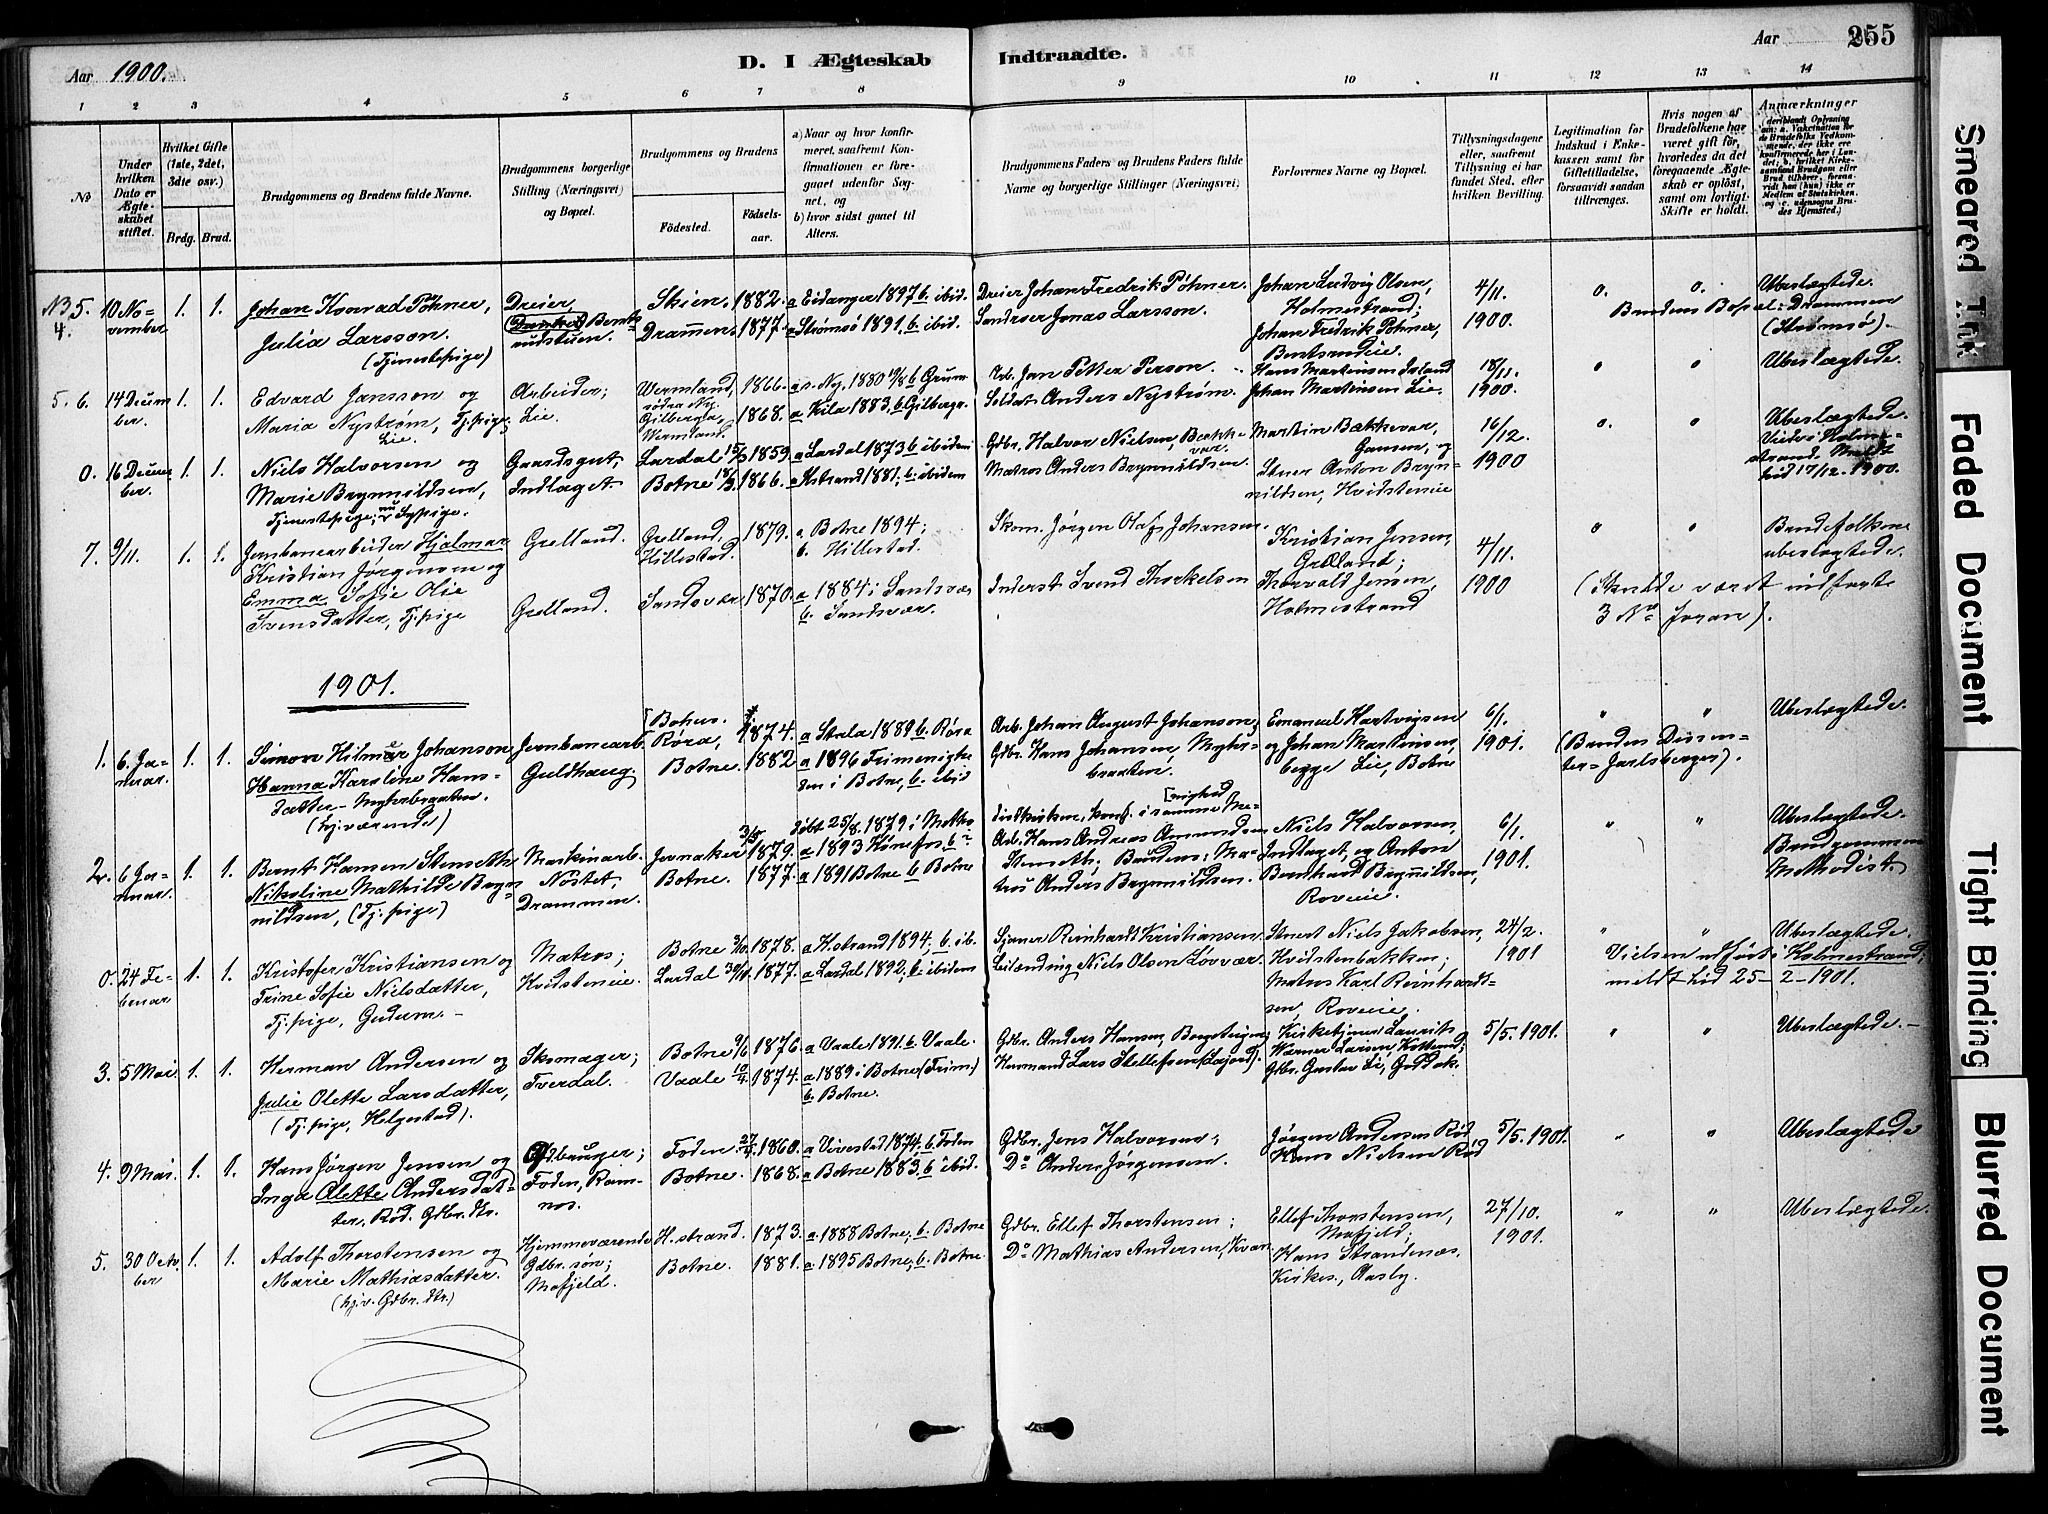 Aar 1900.
D. I Ægteskab Indtraadte.
Aar
255
1 2 3 4 5 6 7 8 9 10 11 12 13 14
No
Under hvilken Dato er Ægteskabet stiftet.
Hvilket Gifte (1ste, 2det, 3dte osv.)
Brdg. Brud.
Brudgommens og Brudens fulde Navne.
Brudgommens borgerlige Stilling (Næringsvei) og Bopæl.
Brudgommens og Brudens
Fødested.
Fødsels-aar.
a) Naar og hvor konfirmeret, saafremt Konfirmationen er foregaaet udenfor Sognet, og
b) hvor sidst gaaet til Alters.
Brudgommens Faders og Brudens Faders fulde Navne og borgerlige Stillinger (Næringsvei)
Forlovernes Navne og Bopæl.
Tillysningsdagene eller, saafremt Tillysning ei har fundet Sted, efter hvilken Bevilling.
Legitimation for Indskud i Enkekassen samt for Giftetilladelse, forsaavidt saadan tiltrænges.
Hvis nogen af Brudefolkene har været gift før, hvorledes da det foregaaende Ægteskab er opløst, samt om lovligt Skifte er holdt.
Anmærkninger
NB 5. 4. 10 November 1. 1. Johan Konrad Pöhner, Dreier, Skien. 1882. a Eidanger 1897 b ibid. Dreier Johan Fredrik Pöhner. Johan Ludvig Olsen, Holmestrand; 4/11 1900. o. o. Ubeslægtede.
Julia Larsson. (Tjenestepige) Bentsrudstuen. Drammen. 1877. a Strømsø 1891. b. ibid. Jonas Larsson. Johan Fredrik Pöhner, Bentsrudeie. Brudens Bopæl: Drammen (Strømsø).
5. 6. 14 December. 1. 1. Edvard Jansson og Arbeider; Lie. Wermland, 1866. Arb. Jan Petter Person. Johan Martinsen Lie. 18/11. 1900. Ubeslægtede.
Maria Nystrøm, Tj.pige, Lie. Gilberga, Wermland. 1868. a Kila 1883. b Gilberga. Soldat Anders Nystrøm.
0. 16 December. 1. 1. Niels Halvorsen og Gaardsgut, Indlaget. Lardal 1859. a Lardal 1873 b ibidem Gdbr. Halvor Nielsen, Bakkevar. 16/12. 1900 Ubeslægtede. Viet i Holmestrand. Meldt hid 17/12. 1900.
Marie Brynnildsen, Tjenestepige; Sypige. Botne 1866. a Hstrand 1881; b. ibidem Matros Anders Brynnildsen. Anton Brynnildsen, Hvidsteneie
7. 9/11. 1. 1. Jernbanearbeider Hjalmar Kristian Jørgensen og Grelland. Grelland, Hillestad. 1879. a. Botne 1894; b. Hillestad. Skom. Jørgen Olaf Johansen. Kristian Jensen, Grelland; 4/11. 1900 Brudefolkene ubeslægtede.
Emma Sofie Olie Svensdatter, Tj.pige Grelland. Sandsvær. 1870. a 1884 i Sandsvær b. Sandsvær. Inderst Svend Thorkelsen Thorvald Jensen, Holmestrand (Skulde været indført 3 No foran).
1901.
1. 6. Januar. 1. 1. Simon Hilmer Johanson, Jernbanearb. Guldhaug. Bohus. Røra, 1874. a Stala 1889 b. Røra Arb. Johan August Johanson; Emanuel Hartvigsen 6/1. 1901. Ubeslægtede.
Hanna Karoline Hansdatter – Myhrebraaten. (hj.værende) Botne. 1882 a 1896 Frimenigheden i Botne, b. ibid Gdbr. Hans Johansen, Myhrebraaten. og Johan Martinsen, begge Lie, Botne (Bruden Dissenter – Jarlsberger).
2. 6 Januar. 1. 1. Bernt Hansen Stenseth Maskinarb. Nøstet, Drammen. Jevnaker 1879. døbt 25/8. 1879 i Methodistkirken, konf. i samme Menighed a 1893 Hønefos b ? Arb. Hans Andreas Amundsen Stenseth; Niels Halvorsen, Indlaget, og Anton 6/1. 1901. Ubeslægtede. Brudgommen Methodist.
Nikoline Mathilde Brynnildsen, (Tj.pige) Botne. 1877. a 1891 Botne b Botne Brudens: Matros Anders Brynnildsen. Bernhard Brynnildsen, Roveie.
0. 24 Februar 1. 1. Kristofer Kristiansen og Matros; Hvidsteneie. Botne 1878. a H.strand 1894; b. ib. Reinhardt Kristiansen. Niels Jakobsen, Hvidstenbakken; 24/2. 1901 Ubeslægtede.
Trine Sofie Nielsdatter, Tj.pige, Gudum. – Lardal 1877. a Lardal 1892, b. ibidem Leilænding Niels Olsen Løvvær. Matros Karl Reinhardtsen, Roveie. Vielsen udført i Holmestrand; meldt hid 25–2–1901.
3. 5 Mai. 1. 1. Herman Andersen og Skomager; Tverdal. Botne 9/6 1876. a Vaale 1891. b. Vaale. Gdbr. Anders Hansen, Kirketjener Laurits Werner Larsen, 5/5. 1901. Ubeslægtede. –
Julie Olette Larsdatter, (Tj.pige, Helgestad). Vaale 10/4. 1874. a 1889 i Botne (Frim) b. Botne. Husmand Lars Stellefsen Gdbr. Gustav Lie,
4. 9 Mai. 1. 1. Hans Jørgen Jensen og Gdbruger; Foden, Ramnes. Foden 1860. a Vivestad 1874; b. Foden Gdbr. Jens Halvorsen; Jørgen Andersen Rød 5/5. 1901. Ubeslægtede
Inga Olette Andersdatter, Rød. Gdbr. dtr. Botne. 1868. a Botne 1883. b ibid. Do Anders Jørgensen. Hans Nielsen Rød
5. 30 October 1. 1. Adolf Thorstensen og Hjemmeværende Gdbr. søn; Mofjeld. H.strand. 1873. a. 1888 Botne, b. Botne Gdbr. Ellef Thorstensen; Ellef Thorstensen, Mofjeld; 27/10. 1901. Ubeslægtede.
Marie Mathiasdatter. (hj.v. Gdbr. dtr.) Botne. 1881. a. 1895 Botne, b. Botne Do Mathias Andersen, Hans Strandenæs, Kirkes., Aasby.
Smeared Ink
Faded Document
Tight Binding
Blurred Document